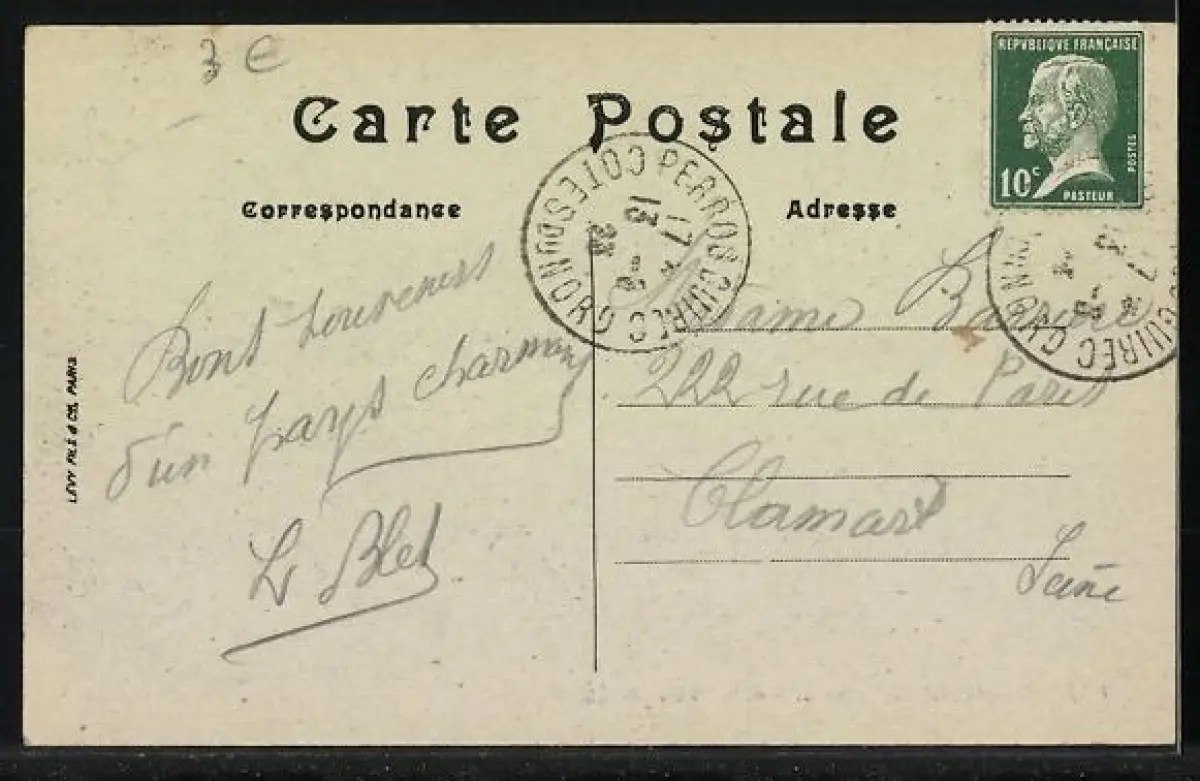 3 €
Carte Postale
REPVBLIQVE FRANÇAISE
10c
POSTES
PASTEUR
Correspondance
Adresse
PERROS GUIREC COTES DU NORD
17 45
13 - 8
23
GUIREC
Bons souvenirs
d'un pays charmant
Madame
222 rue de Paris
Clamart
Seine
LEVY FILS & Cie, PARIS